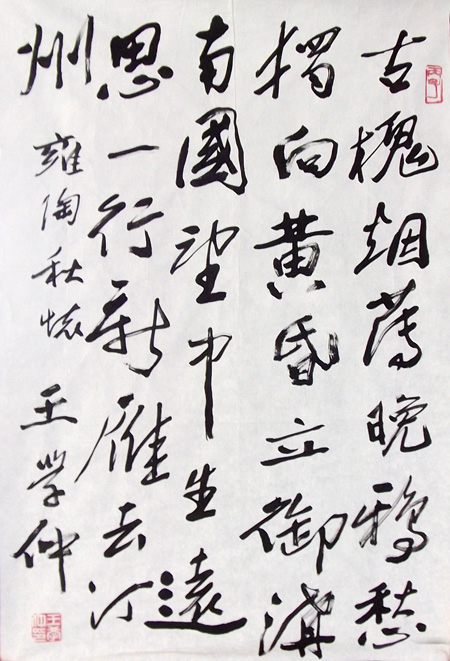 古槐烟薄晚鸦愁
獨向黄昏立御溝
南國望中生遠
思一行新雁去汀
州
雍陶秋懷
王學仲